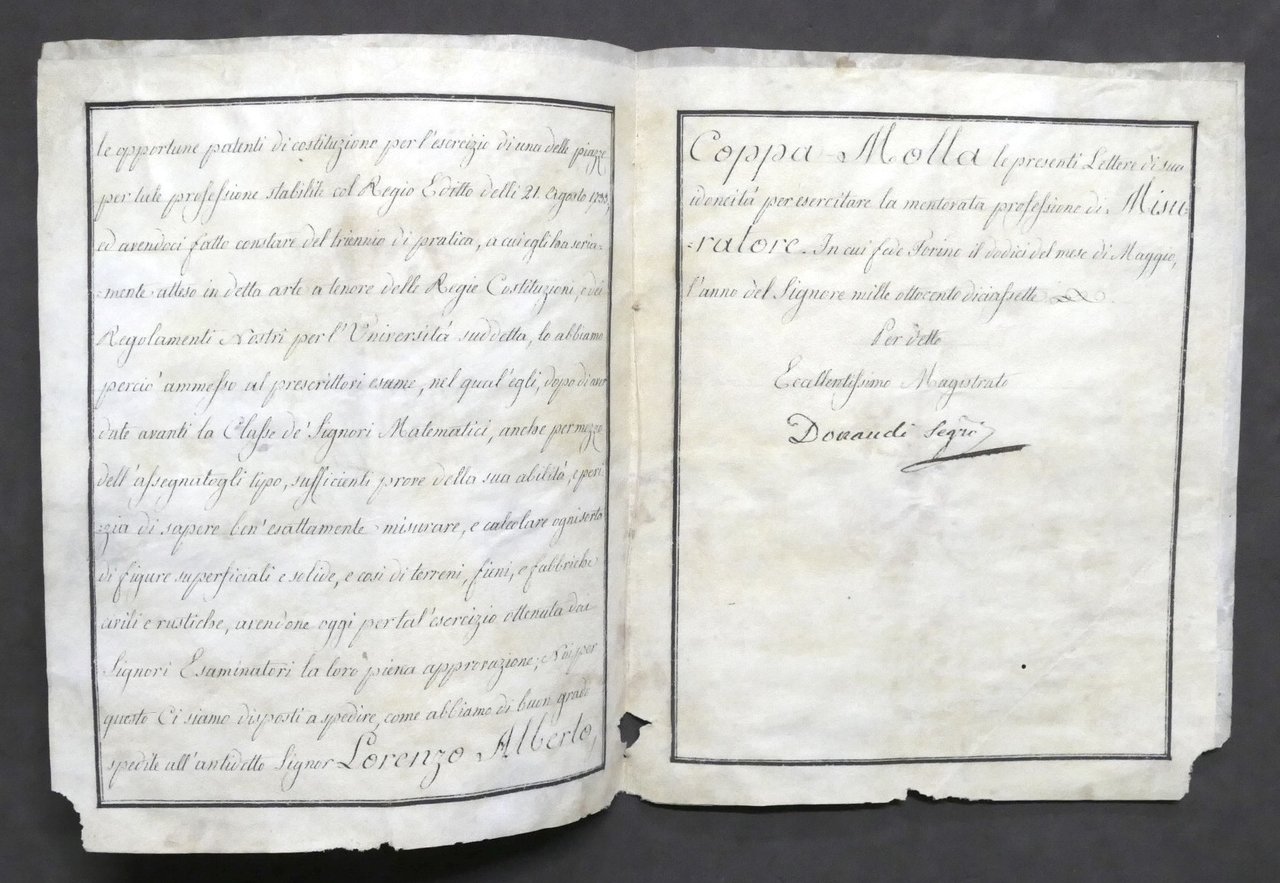 le opportune patenti di costituzione per l'esercizio di una delle piazze
per tale professione stabilite col Regio Editto delli 21. Agosto 1733,
ed avendoci fatto constare del triennio di pratica, a cui egli ha seria-
mente atteso in detta arte a tenore delle Regie Costituzioni, e dei
Regolamenti Nostri per l'Università suddetta, lo abbiamo
perciò ammesso al prescrittori esame, nel qual'egli, dopo di aver
date avanti la Classe de' Signori Matematici, anche per mezzo
dell'assegnatogli tipo, sufficienti prove della sua abilità, e peri-
-zia di sapere ben'esattamente misurare, e calcolare ogni sorta
di figure superficiali e solide, e così di terreni, fieni, e fabbriche
civili e rustiche, avendone oggi per tal'esercizio ottenuta dai
Signori Esaminatori la loro piena approvazione; Noi per
questo Ci siamo disposti a spedire, come abbiamo di buon grado
spedite all'antidetto Signor Lorenzo Alberto,
Coppa-Molla le presenti Lettere di sua
idoneità per esercitare la mentovata professione di Misu-
-ratore. In cui fede Torino il dodici del mese di Maggio,
l'anno del Signore mille ottocento diciassette
Per detto
Eccellentissimo Magistrato